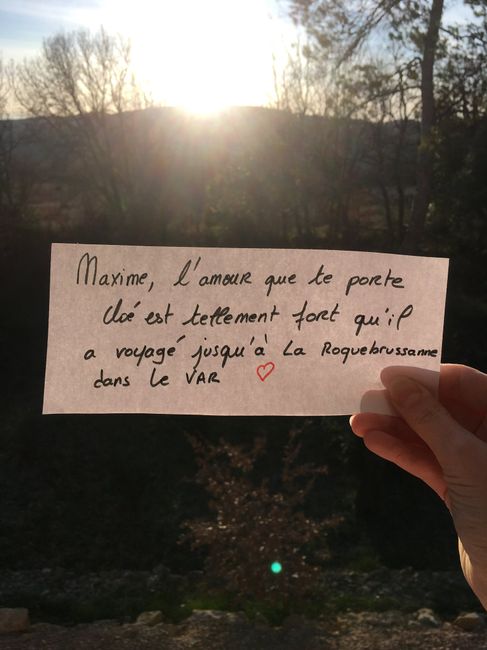 Maxime, l'amour que te porte
Cloé est tellement fort qu'il
a voyagé jusqu'à La Roquebrussanne
dans le VAR